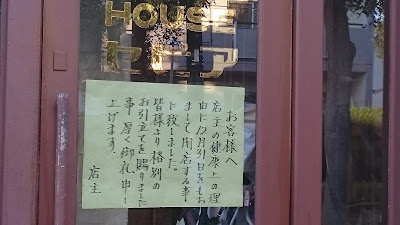 HOUSE
セピア
お客様へ
店主の健康上の理
由に12月31日をもち
まして閉店する事
に致しました。
皆様より格別の
お引立てを賜りました
事厚く御礼申し
上げます。
店主